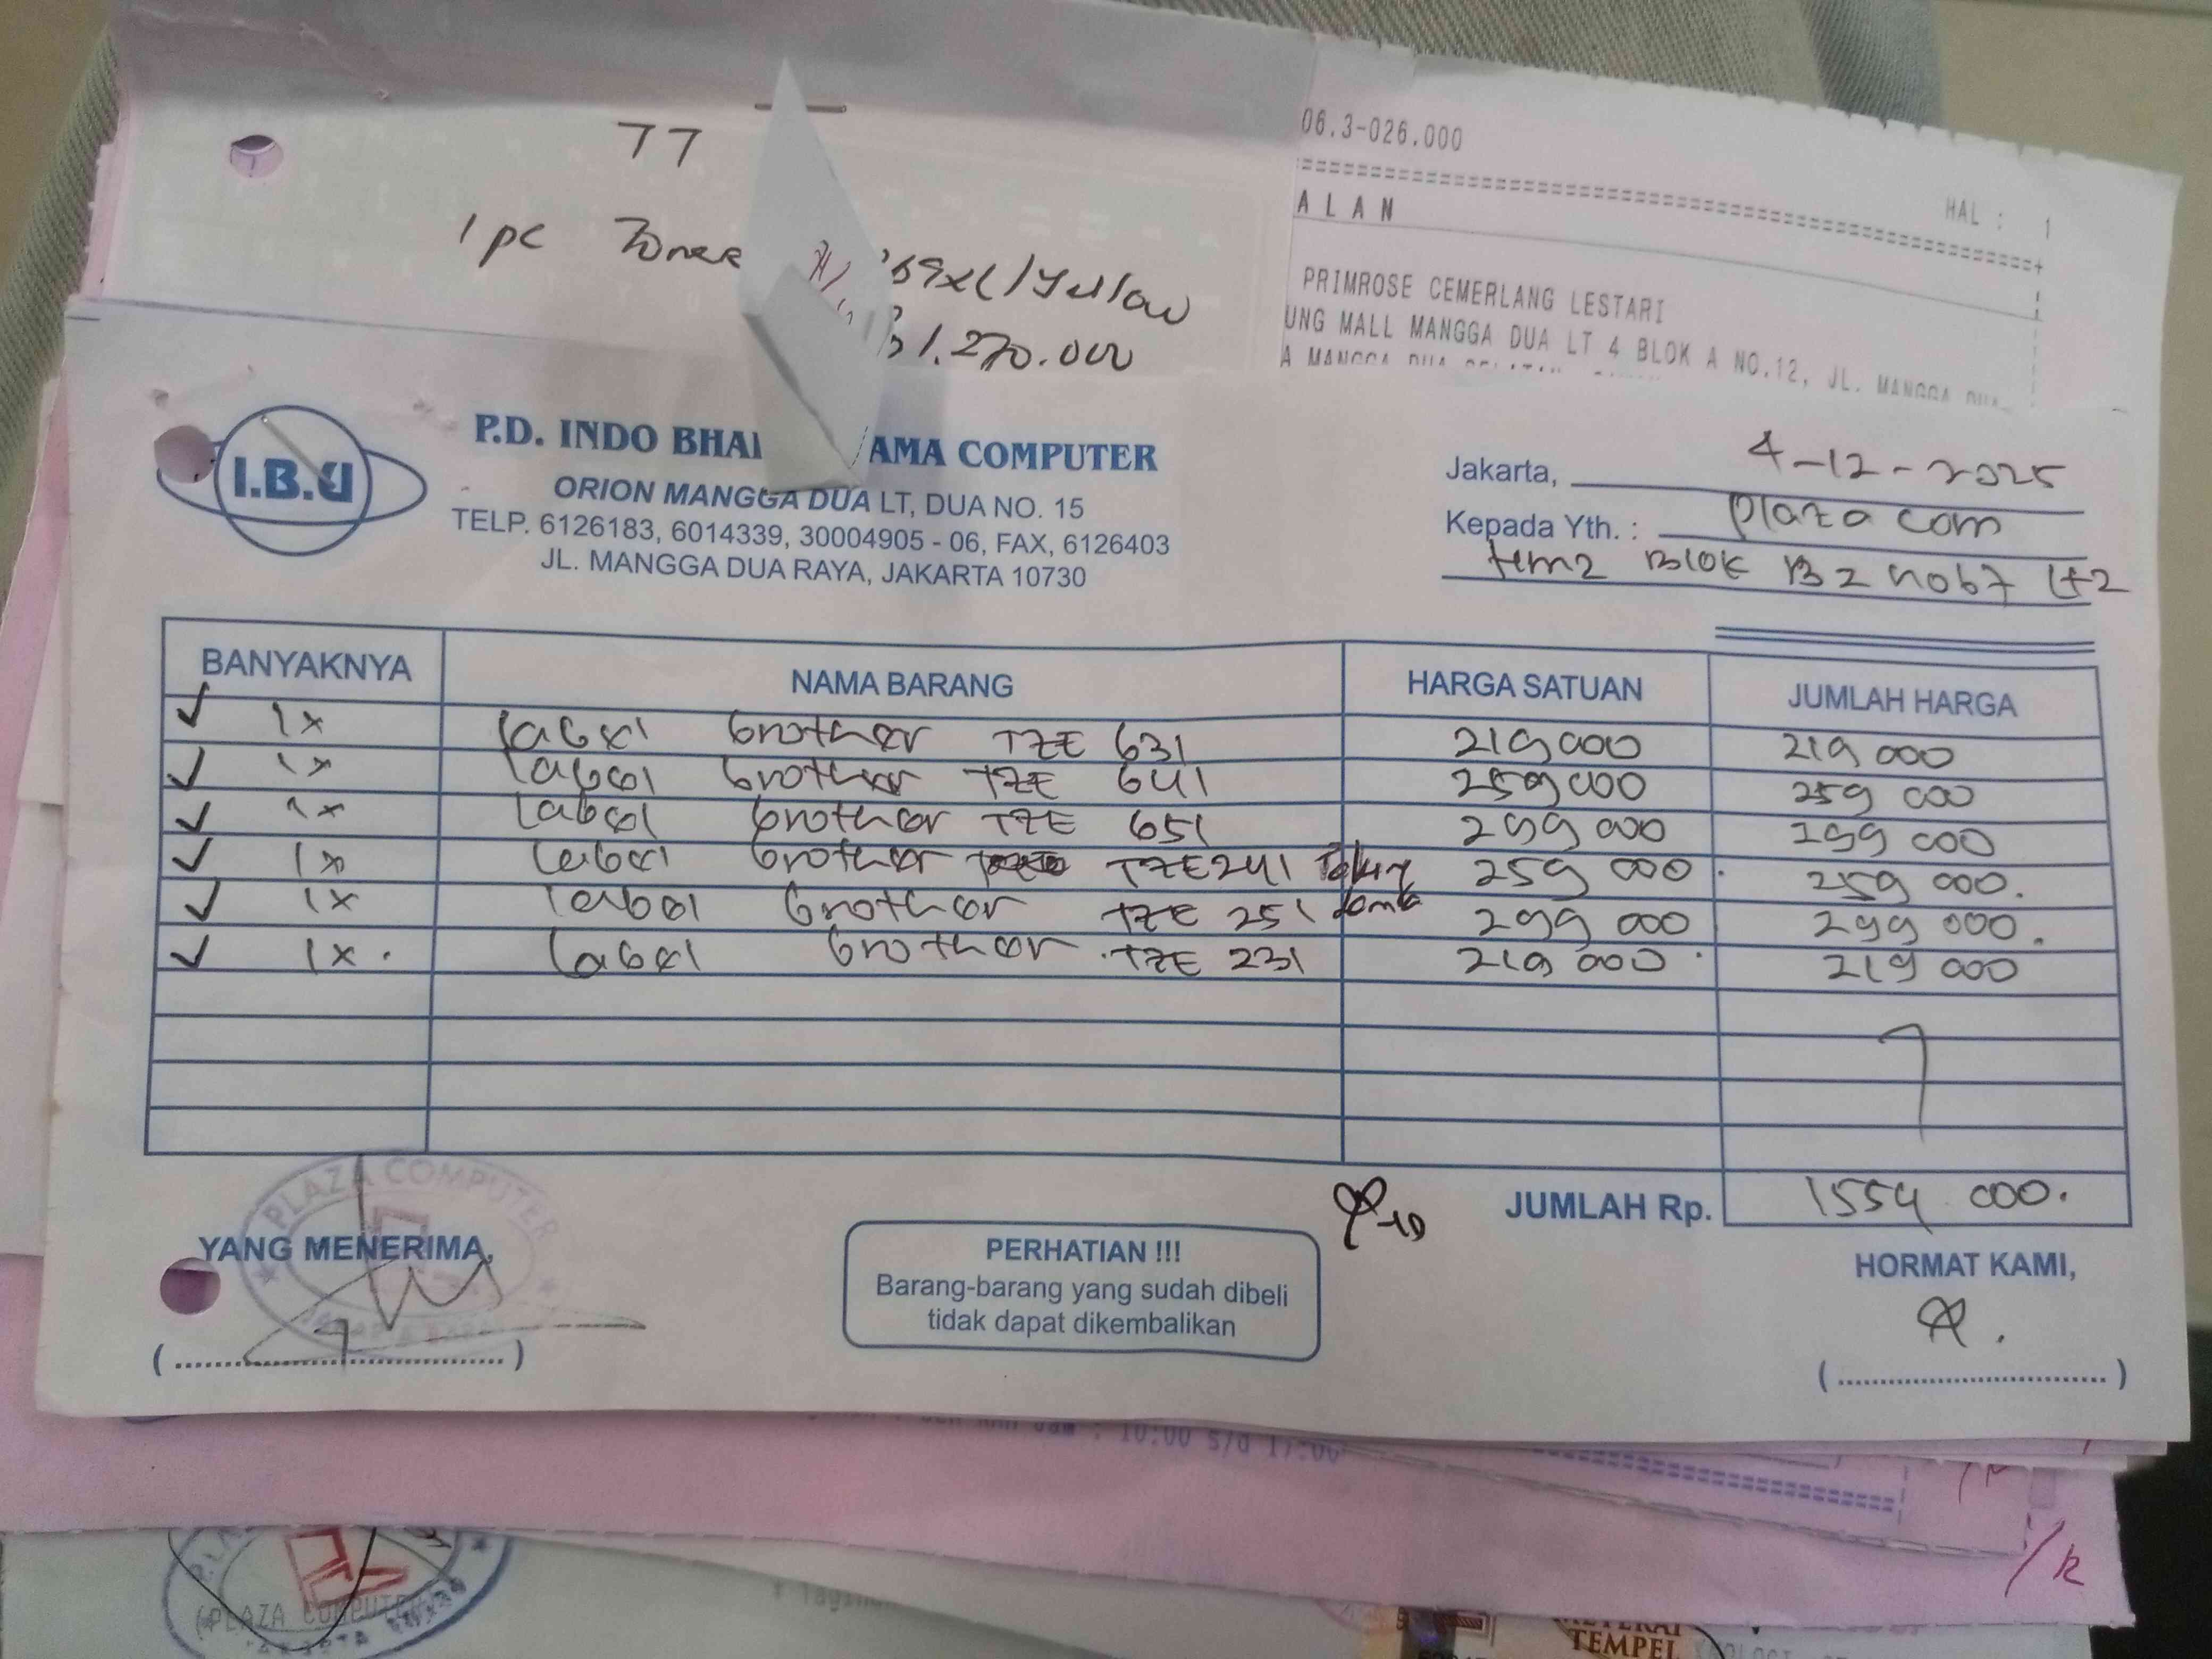 06.3-026.000
HAL : 1
A L A N
PRIMROSE CEMERLANG LESTARI
UNG MALL MANGGA DUA LT 4 BLOK A NO.12, JL. MANGGA DUA
A MANGGA DUA
77
1 pc Toner 69XL/Yellow
1.270.000
I.B.U
P.D. INDO BHA AMA COMPUTER
ORION MANGGA DUA LT, DUA NO. 15
TELP. 6126183, 6014339, 30004905 - 06, FAX, 6126403
JL. MANGGA DUA RAYA, JAKARTA 10730
Jakarta, 4-12-2025
Kepada Yth. : plaza com
Blok B2 no67 lt2
BANYAKNYA NAMA BARANG HARGA SATUAN JUMLAH HARGA
1x label brother TZE 631 219 000 219 000
1x label brother TZE 641 259 000 259 000
1x label brother TZE 651 299 000 299 000
1x label brother TZE 241 259 000 259 000.
1x label brother TZE 251 299 000 299 000.
1x. label brother TZE 231 219 000 219 000
JUMLAH Rp. 1554 000.
PLAZA COMPUTER
YANG MENERIMA,
(..............................)
PERHATIAN !!!
Barang-barang yang sudah dibeli
tidak dapat dikembalikan
HORMAT KAMI,
(..............................)
: 10:00 s/d 17:00
(PLAZA COMPUTER
TEMPEL